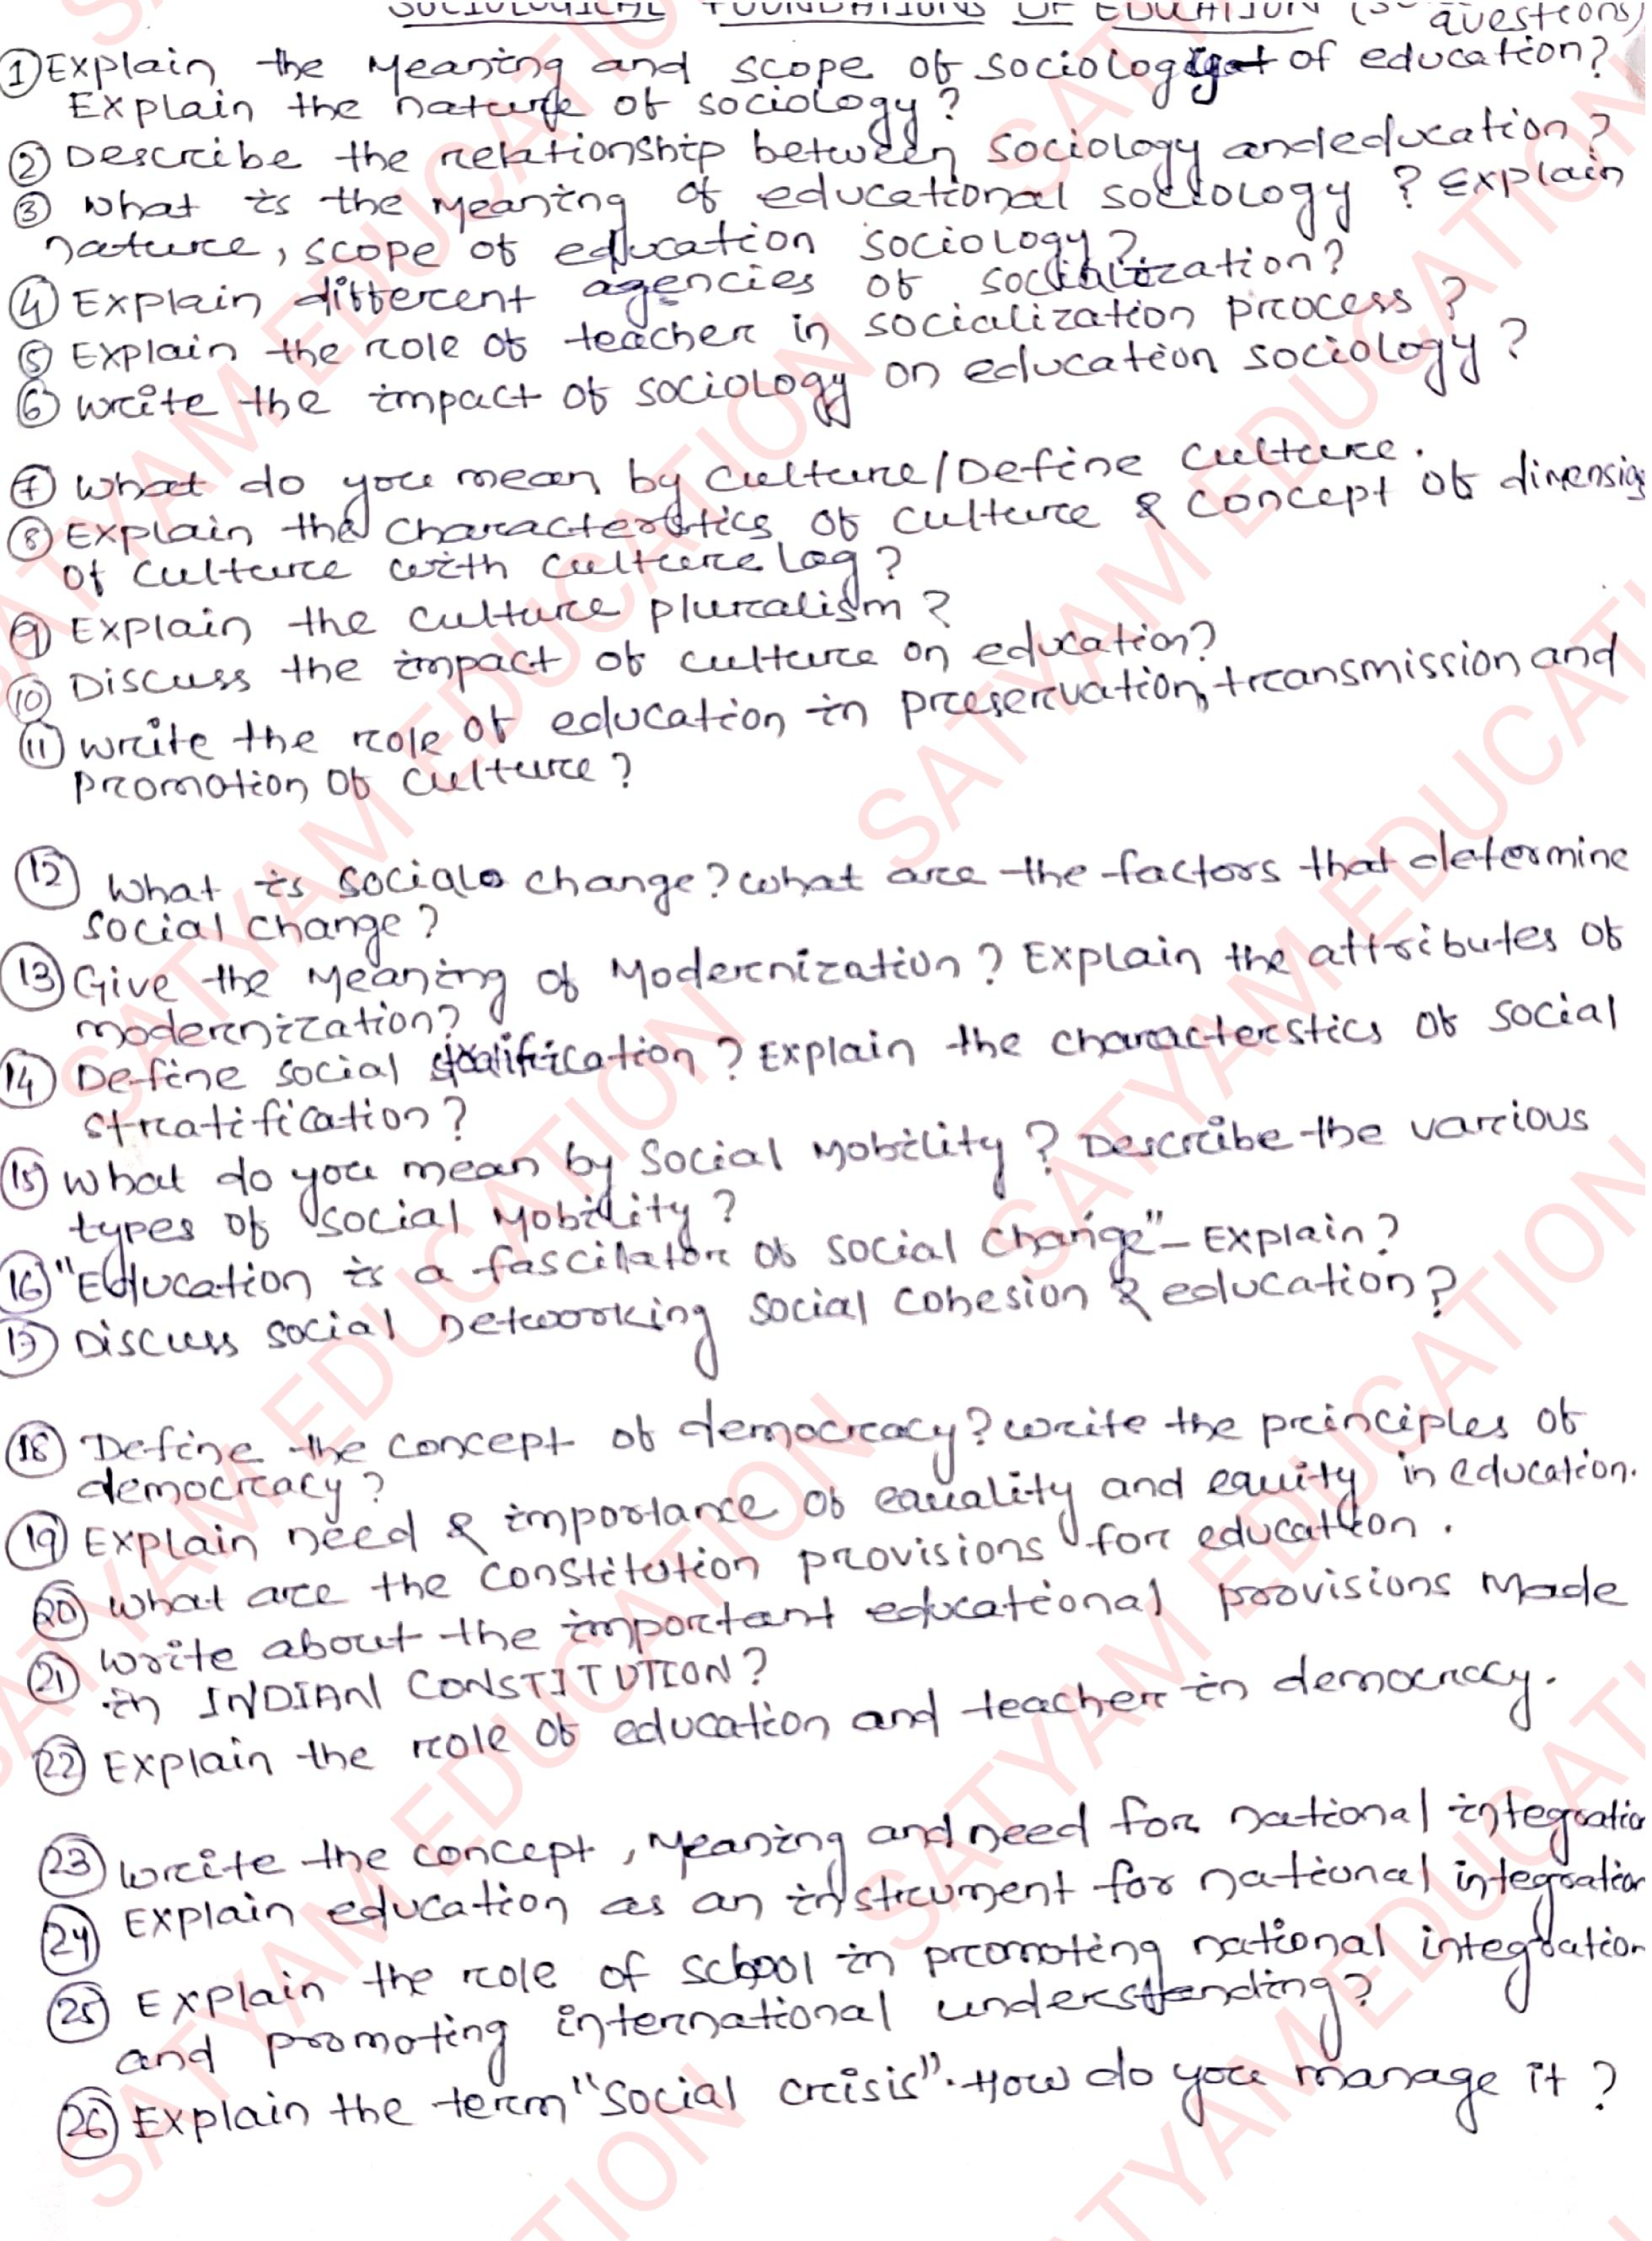 SOCIOLOGICAL FOUNDATIONS OF EDUCATION
questions)
① Explain the Meaning and scope of sociology of education?
Explain the nature of sociology?
② Describe the relationship between sociology and education?
③ What is the Meaning of educational sociology? Explain
nature, scope of education sociology?
④ Explain different agencies of socialization?
⑤ Explain the role of teacher in socialization process?
⑥ write the impact of sociology on education sociology?
⑦ What do you mean by culture/Define culture.
⑧ Explain the Characteristics of culture & concept of dimensio
of culture with culture lag?
⑨ Explain the culture pluralism?
⑩ Discuss the impact of culture on education?
⑪ write the role of education in preservation, transmission and
promotion of culture?
⑫ What is social change? what are the factors that determine
social change?
⑬ Give the Meaning of Modernization? Explain the attributes of
modernization?
⑭ Define social stratification? Explain the characterstics of social
stratification?
⑮ What do you mean by Social Mobility? Describe the various
types of social Mobility?
⑯ "Education is a fascilator of social change" - Explain?
⑰ Discuss social networking social cohesion & education?
⑱ Define the concept of democracy? write the principles of
democracy?
⑲ Explain need & importance of equality and equity in education.
⑳ What are the constitution provisions for education.
㉑ Write about the important educational provisions Made
in INDIAN CONSTITUTION?
㉒ Explain the role of education and teacher in democracy.
㉓ write the concept, Meaning and need for national integratio
㉔ Explain education as an instrument for national integration
㉕ Explain the role of school in promoting national integration
and promoting international understanding?
㉖ Explain the term "Social crisis". How do you manage it?
SATYAM EDUCATION